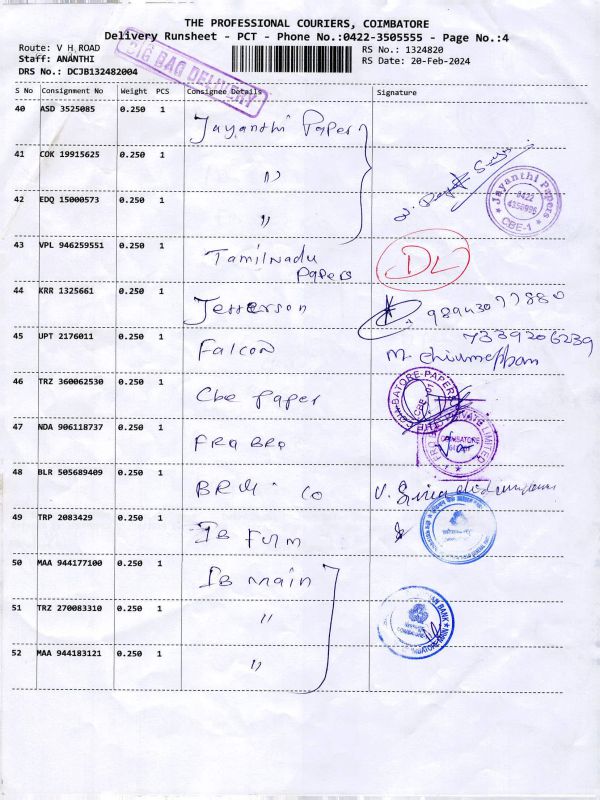 THE PROFESSIONAL COURIERS, COIMBATORE
Delivery Runsheet - PCT - Phone No.:0422-3505555 - Page No.:4
Route: V H ROAD
RS No.: 1324820
Staff: ANANTHI
RS Date: 20-Feb-2024
DRS No.: DCJB132482004
BIG BAG DELIVERY
S No Consignment No Weight PCS Consignee Details Signature
40 ASD 3525085 0.250 1 Jayanthi Paper
41 COK 19915625 0.250 1 "
42 EDQ 15000573 0.250 1 "
Jayanthi Papers
0422
CBE-1
43 VPL 946259551 0.250 1 Tamilnadu
Papers
DL
44 KRR 1325661 0.250 1 Jefferson
45 UPT 2176011 0.250 1 Falcon
7339206239
46 TRZ 360062530 0.250 1 Cbe Paper
47 NDA 906118737 0.250 1
COIMBATORE
48 BLR 505689409 0.250 1
49 TRP 2083429 0.250 1
50 MAA 944177100 0.250 1 IB Main
51 TRZ 270083310 0.250 1 "
52 MAA 944183121 0.250 1 "